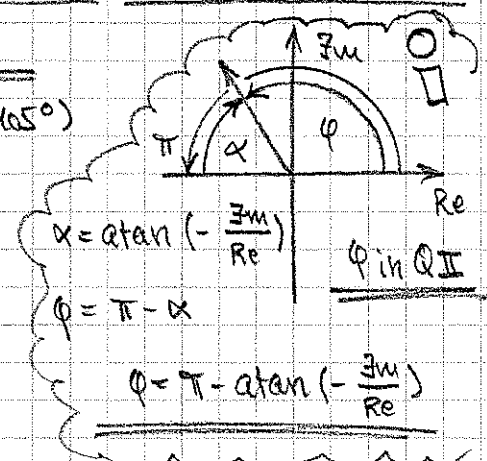 Im
105°)
π α φ
Re
α = atan (- Im/Re)
φ in QII
φ = π - α
φ = π - atan (- Im/Re)